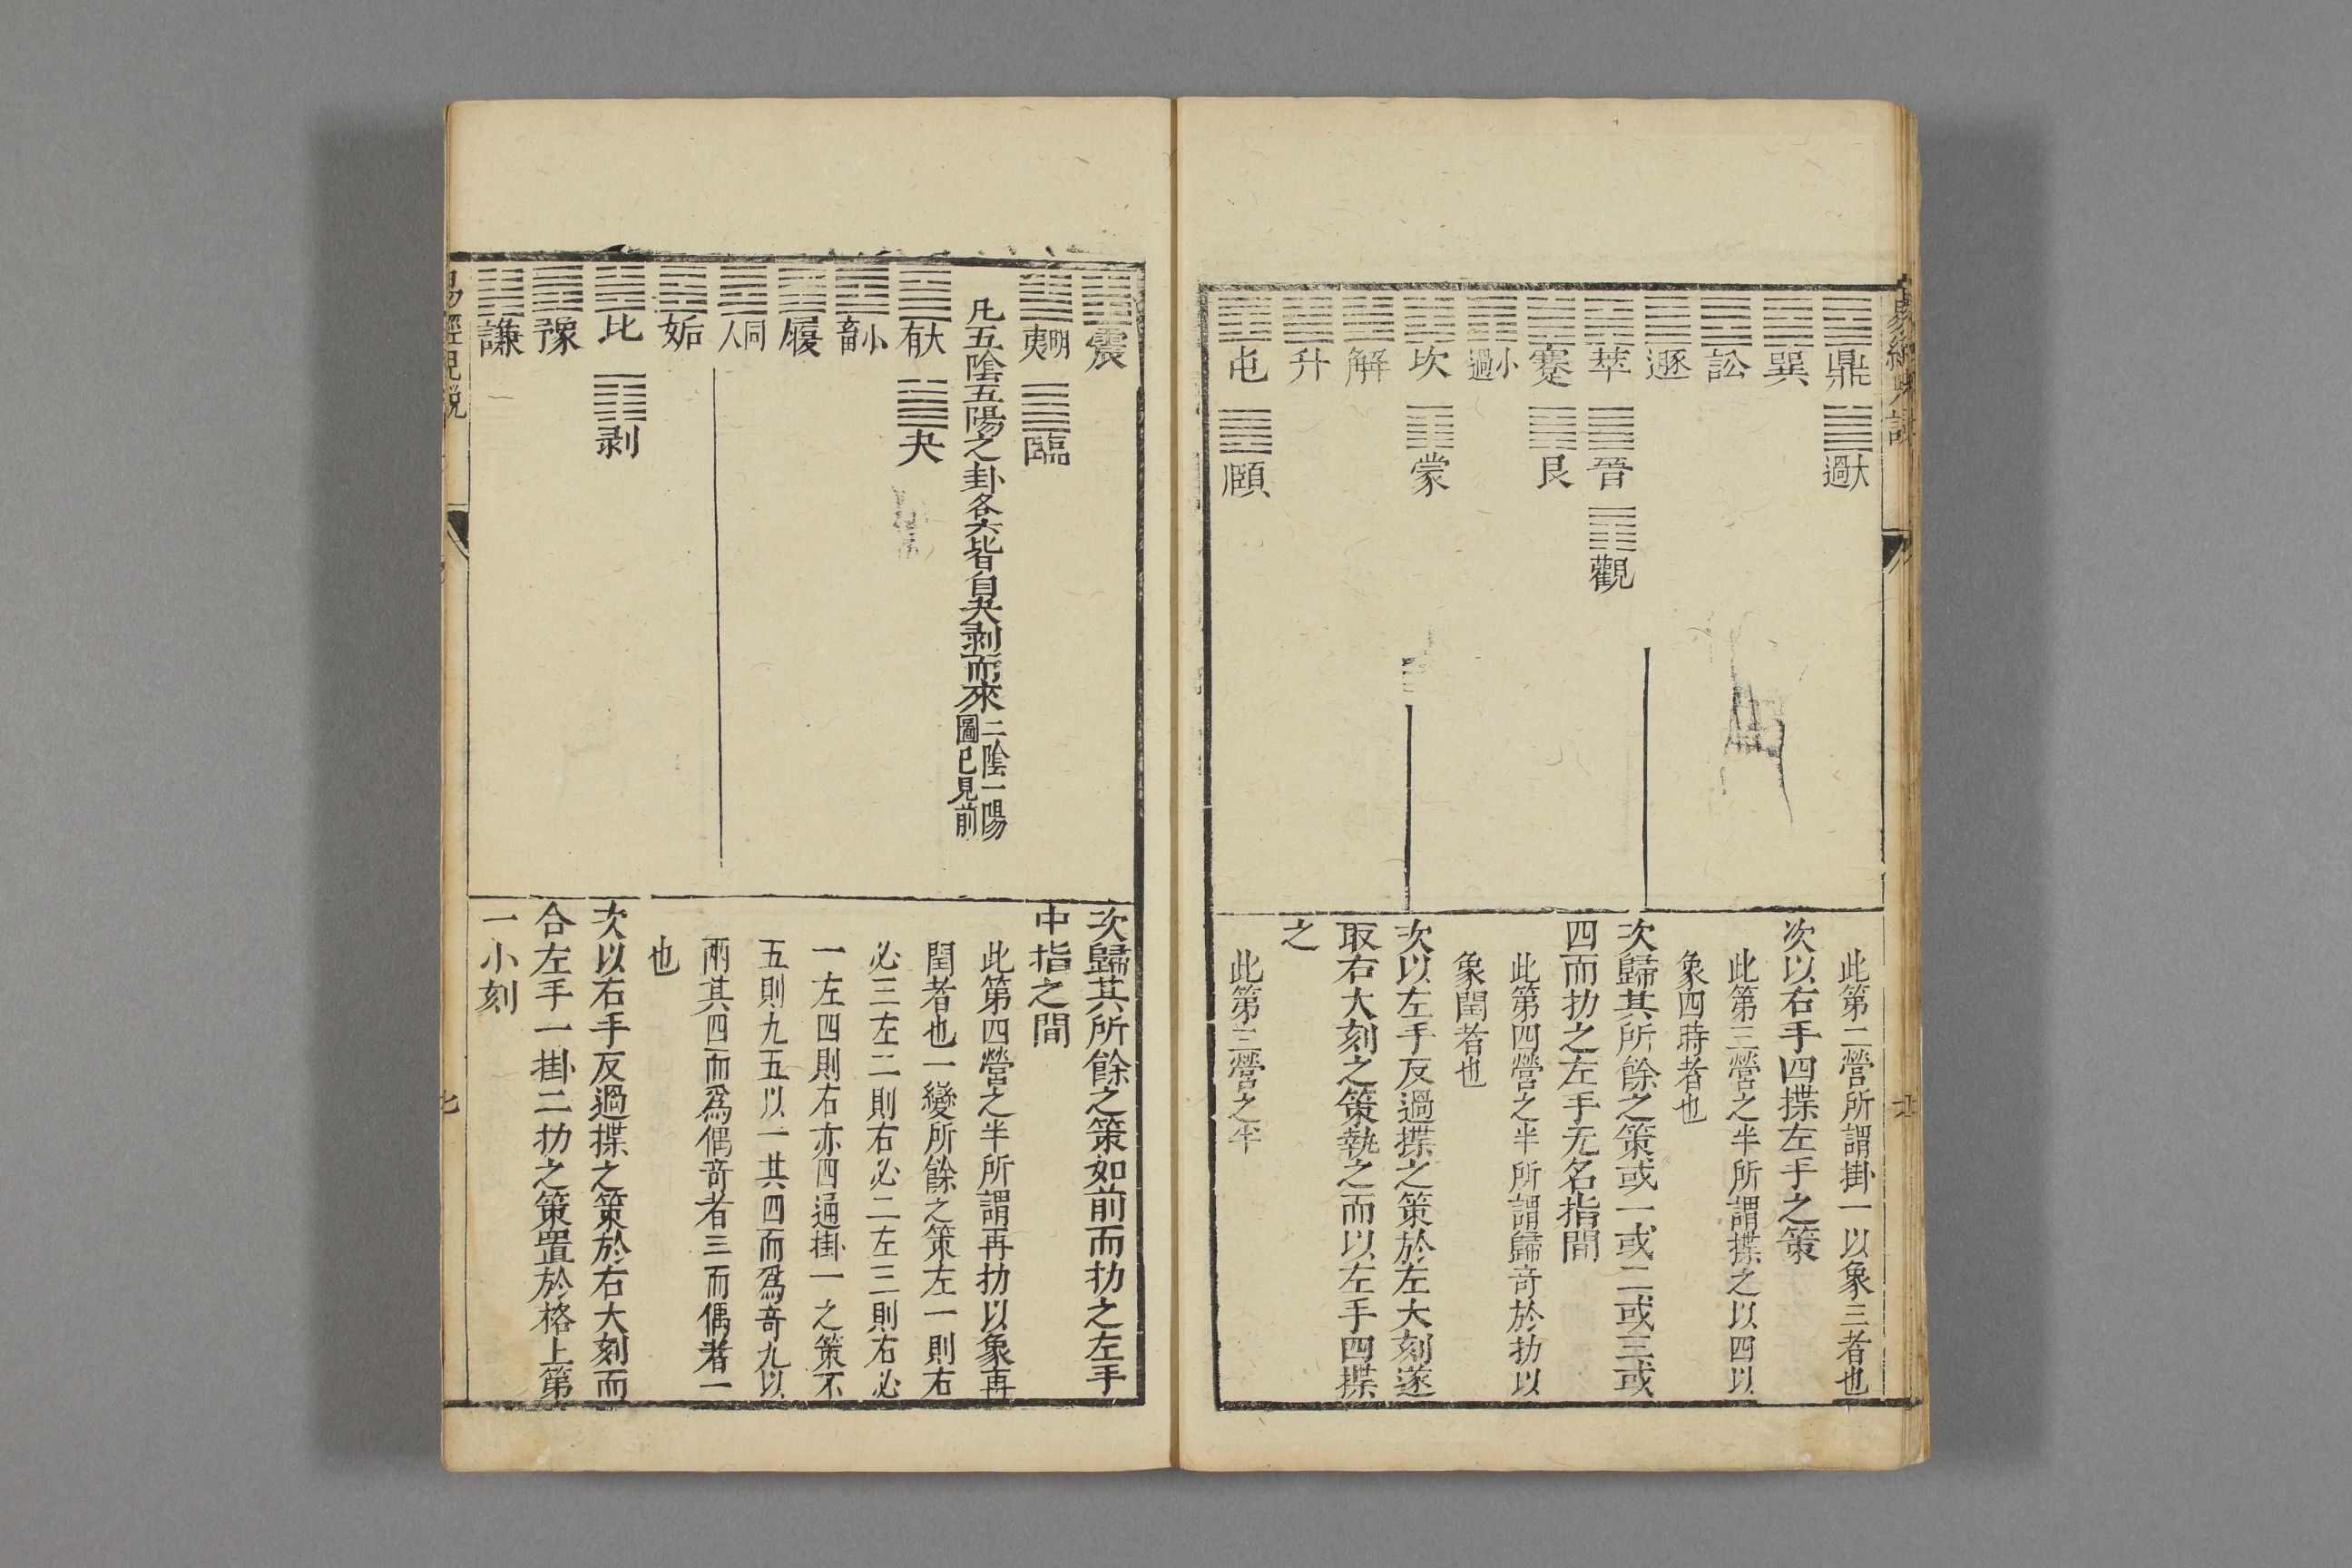 鼎 大過
巽
訟
遯
萃 晉 觀
蹇 艮
小過
坎 蒙
解
升
屯 頤
此第二營所謂掛一以象三者也
次以右手四揲左手之策
此第三營之半所謂揲之以四以
象四時者也
次歸其所餘之策或一或二或三或
四而扐之左手无名指間
此第四營之半所謂歸奇於扐以
象閏者也
次以左手反過揲之策於左大刻遂
取右大刻之策執之而以左手四揲
之
此第三營之半
震
明夷 臨
凡五陰五陽之卦各六皆自夬剥而來二陰一陽圖已見前
大有 夬
小畜
履
同人
姤
比 剥
豫
謙
次歸其所餘之策如前而扐之左手
中指之間
此第四營之半所謂再扐以象再
閏者也一變所餘之策左一則右
必三左二則右必二左三則右必
一左四則右亦四通掛一之策不
五則九五以一其四而爲奇九以
兩其四而爲偶奇者三而偶者一
也
次以右手反過揲之策於右大刻而
合左手一掛二扐之策置於格上第
一小刻
易經兒說
七